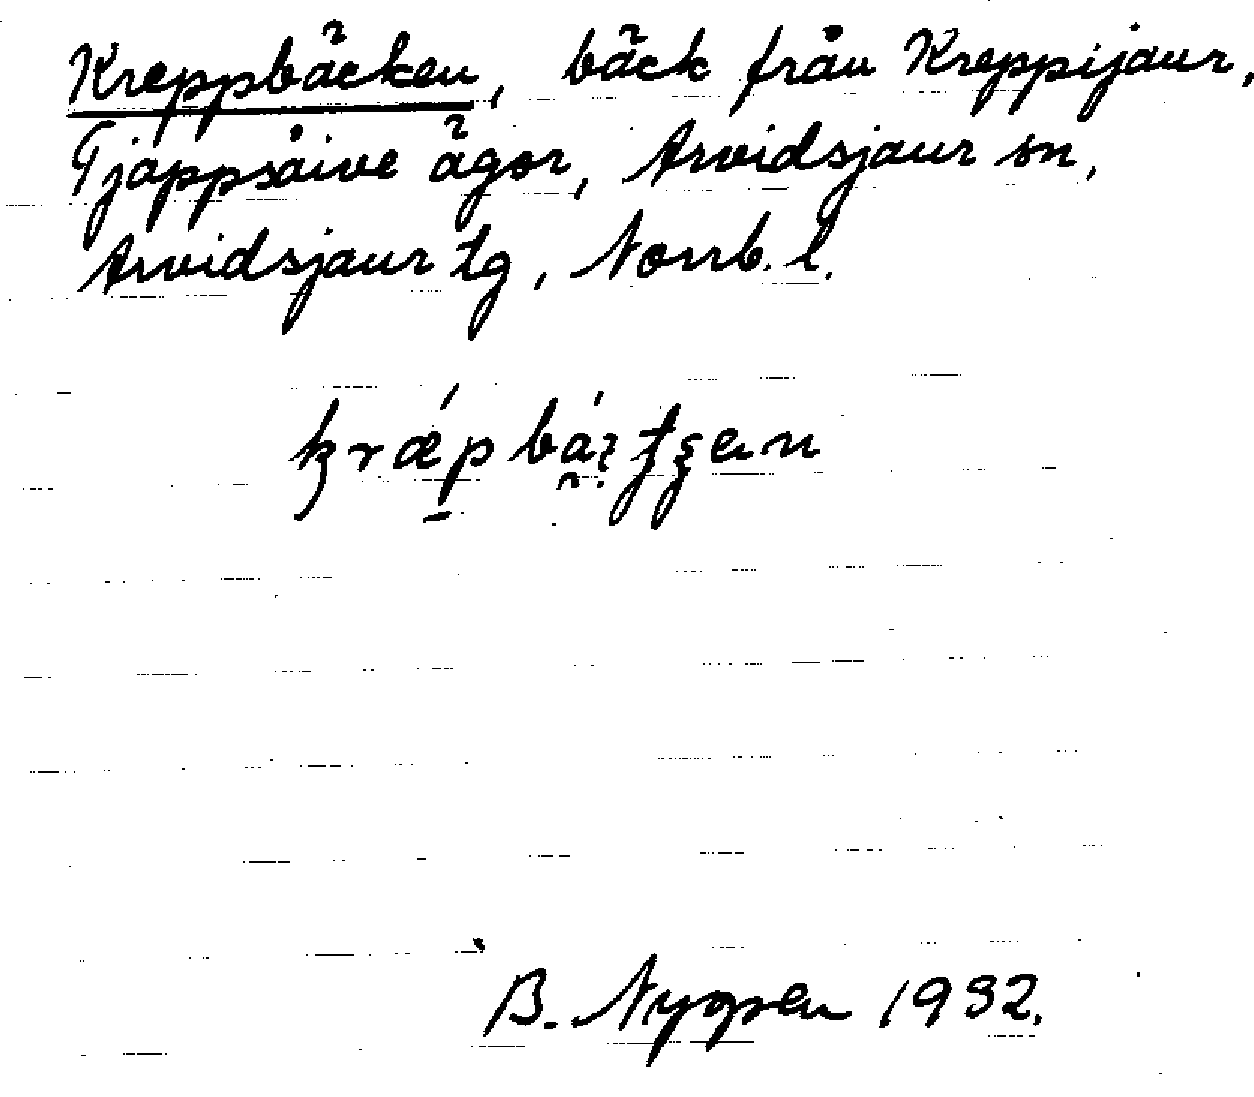 Kreppbäcken, bäck från Kreppijaur,
Tjappsåive ägor, Arvidsjaur sn,
Arvidsjaur tg, Norrb. l.
B. Nygren 1932.